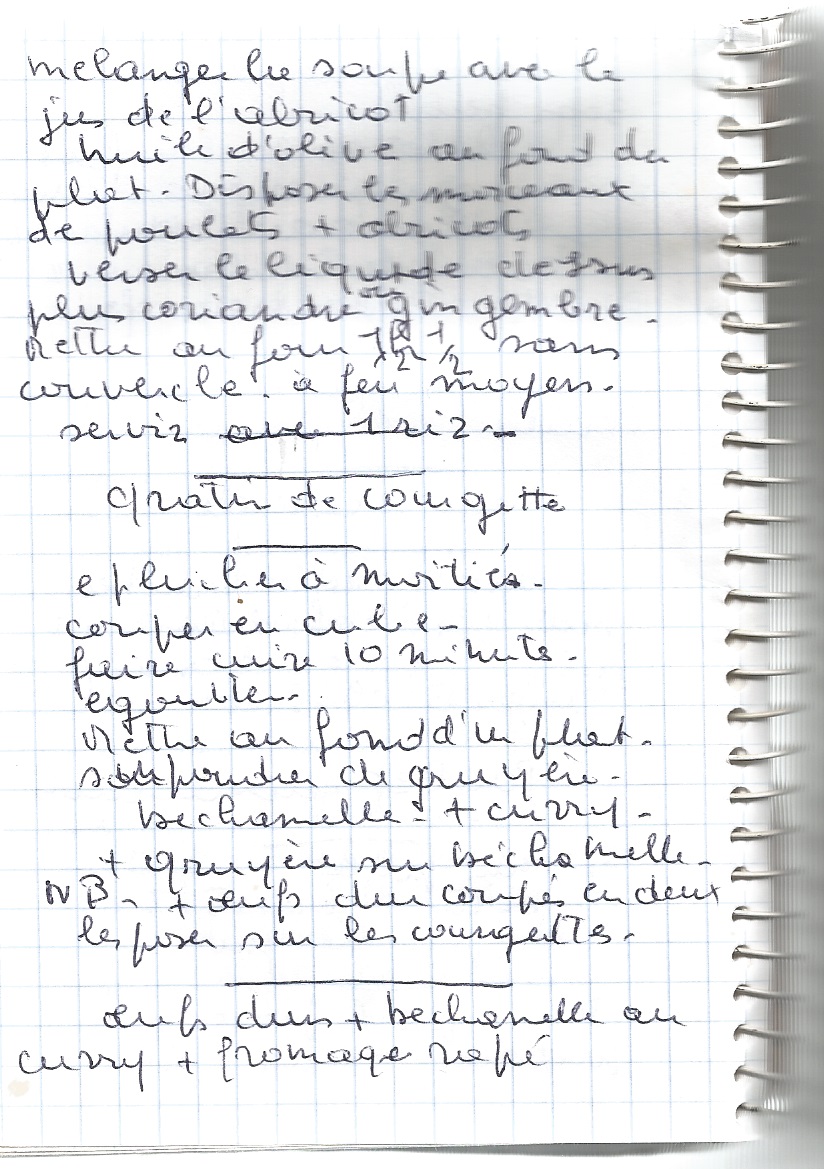 melanger la soupe avec le
jus de l'abricot
huile d'olive au fond du
plat. Disposer les morceaux
de poulets + abricots
verser le liquide dessus
plus coriandre gingembre.
Mettre au four 1/2 sans
couvercle. à feu moyen.
servir avec riz.
gratin de courgette
eplucher à moitiés.
couper en cube.
faire cuire 10 minutes.
egoutter.
Mettre au fond d'un plat.
saupoudrer de gruyère.
bechamelle + curry.
+ gruyère sur béchamelle.
NB. + œufs durs coupés en deux
les poser sur les courgettes.
œufs durs + bechamelle au
curry + fromage rapé